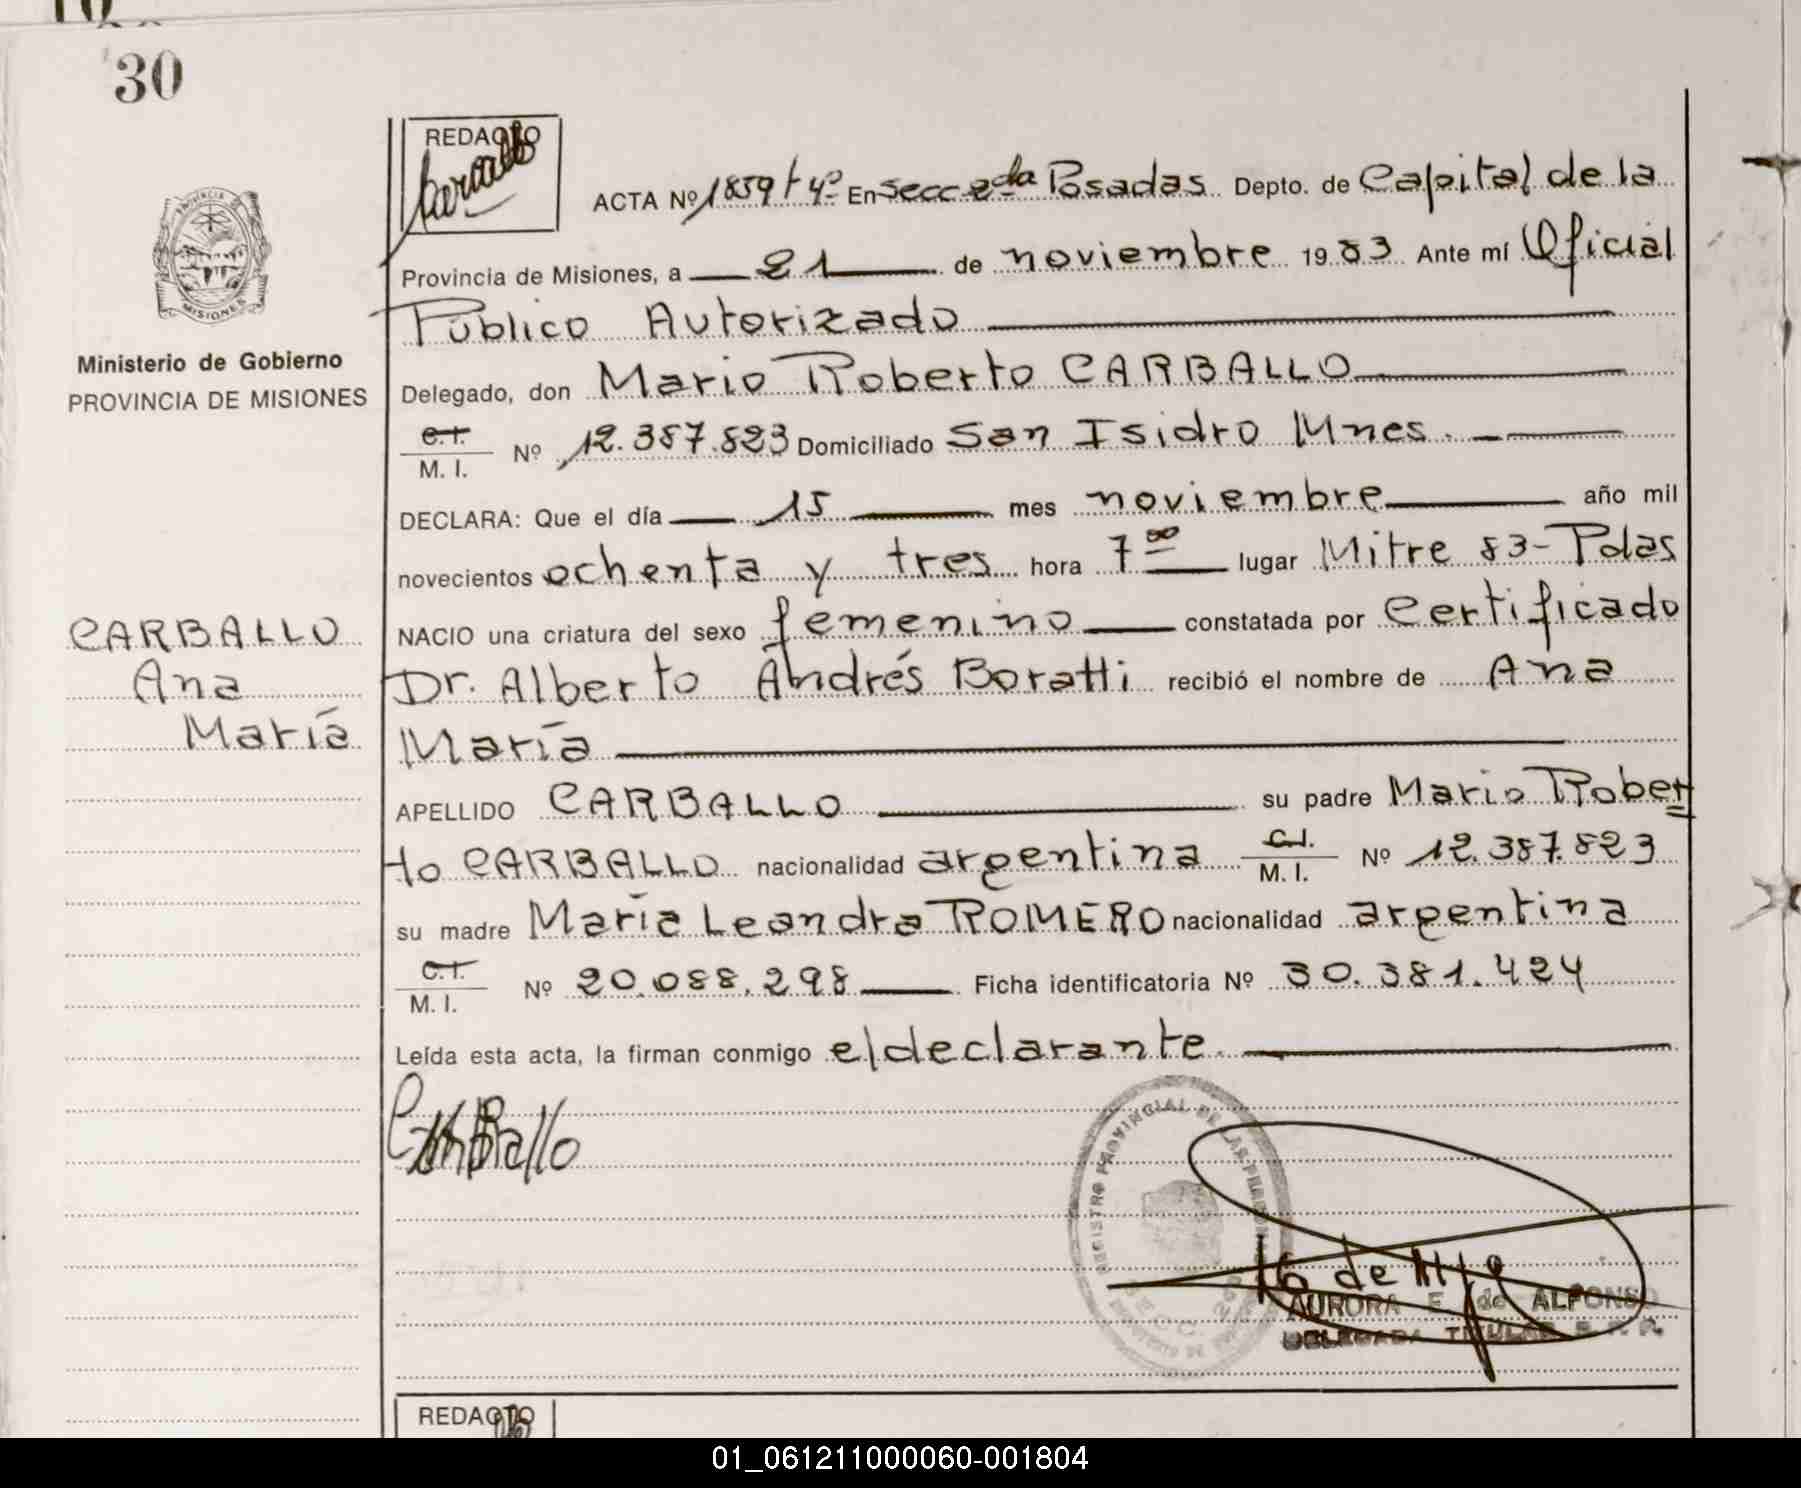 30
REDACTO
Carballo
ACTA Nº 1859 t 4º En Secc. 2da Posadas Depto. de Capital de la
Provincia de Misiones, a 21 de noviembre 1983 Ante mí Oficial
Público Autorizado
Delegado, don Mario Roberto CARBALLO
C.I. / M. I. Nº 12.387.823 Domiciliado San Isidro Mnes.
DECLARA: Que el día 15 mes noviembre año mil
novecientos ochenta y tres hora 7 00 lugar Mitre 83-Pdas
NACIO una criatura del sexo femenino constatada por Certificado
Dr. Alberto Andrés Boratti recibió el nombre de Ana
María
APELLIDO CARBALLO su padre Mario Rober
to CARBALLO nacionalidad argentina C.I. / M. I. Nº 12.387.823
su madre María Leandra ROMERO nacionalidad argentina
C.I. / M. I. Nº 20.088.298 Ficha identificatoria Nº 30.381.424
Leída esta acta, la firman conmigo el declarante.
Carballo
MISIONES
Ministerio de Gobierno
PROVINCIA DE MISIONES
CARBALLO
Ana
María
REGISTRO PROVINCIAL DE LAS PERSONAS
AURORA E. de ALFONSO
DELEGADA TITULAR R. P. P.
REDACTO
01_061211000060-001804